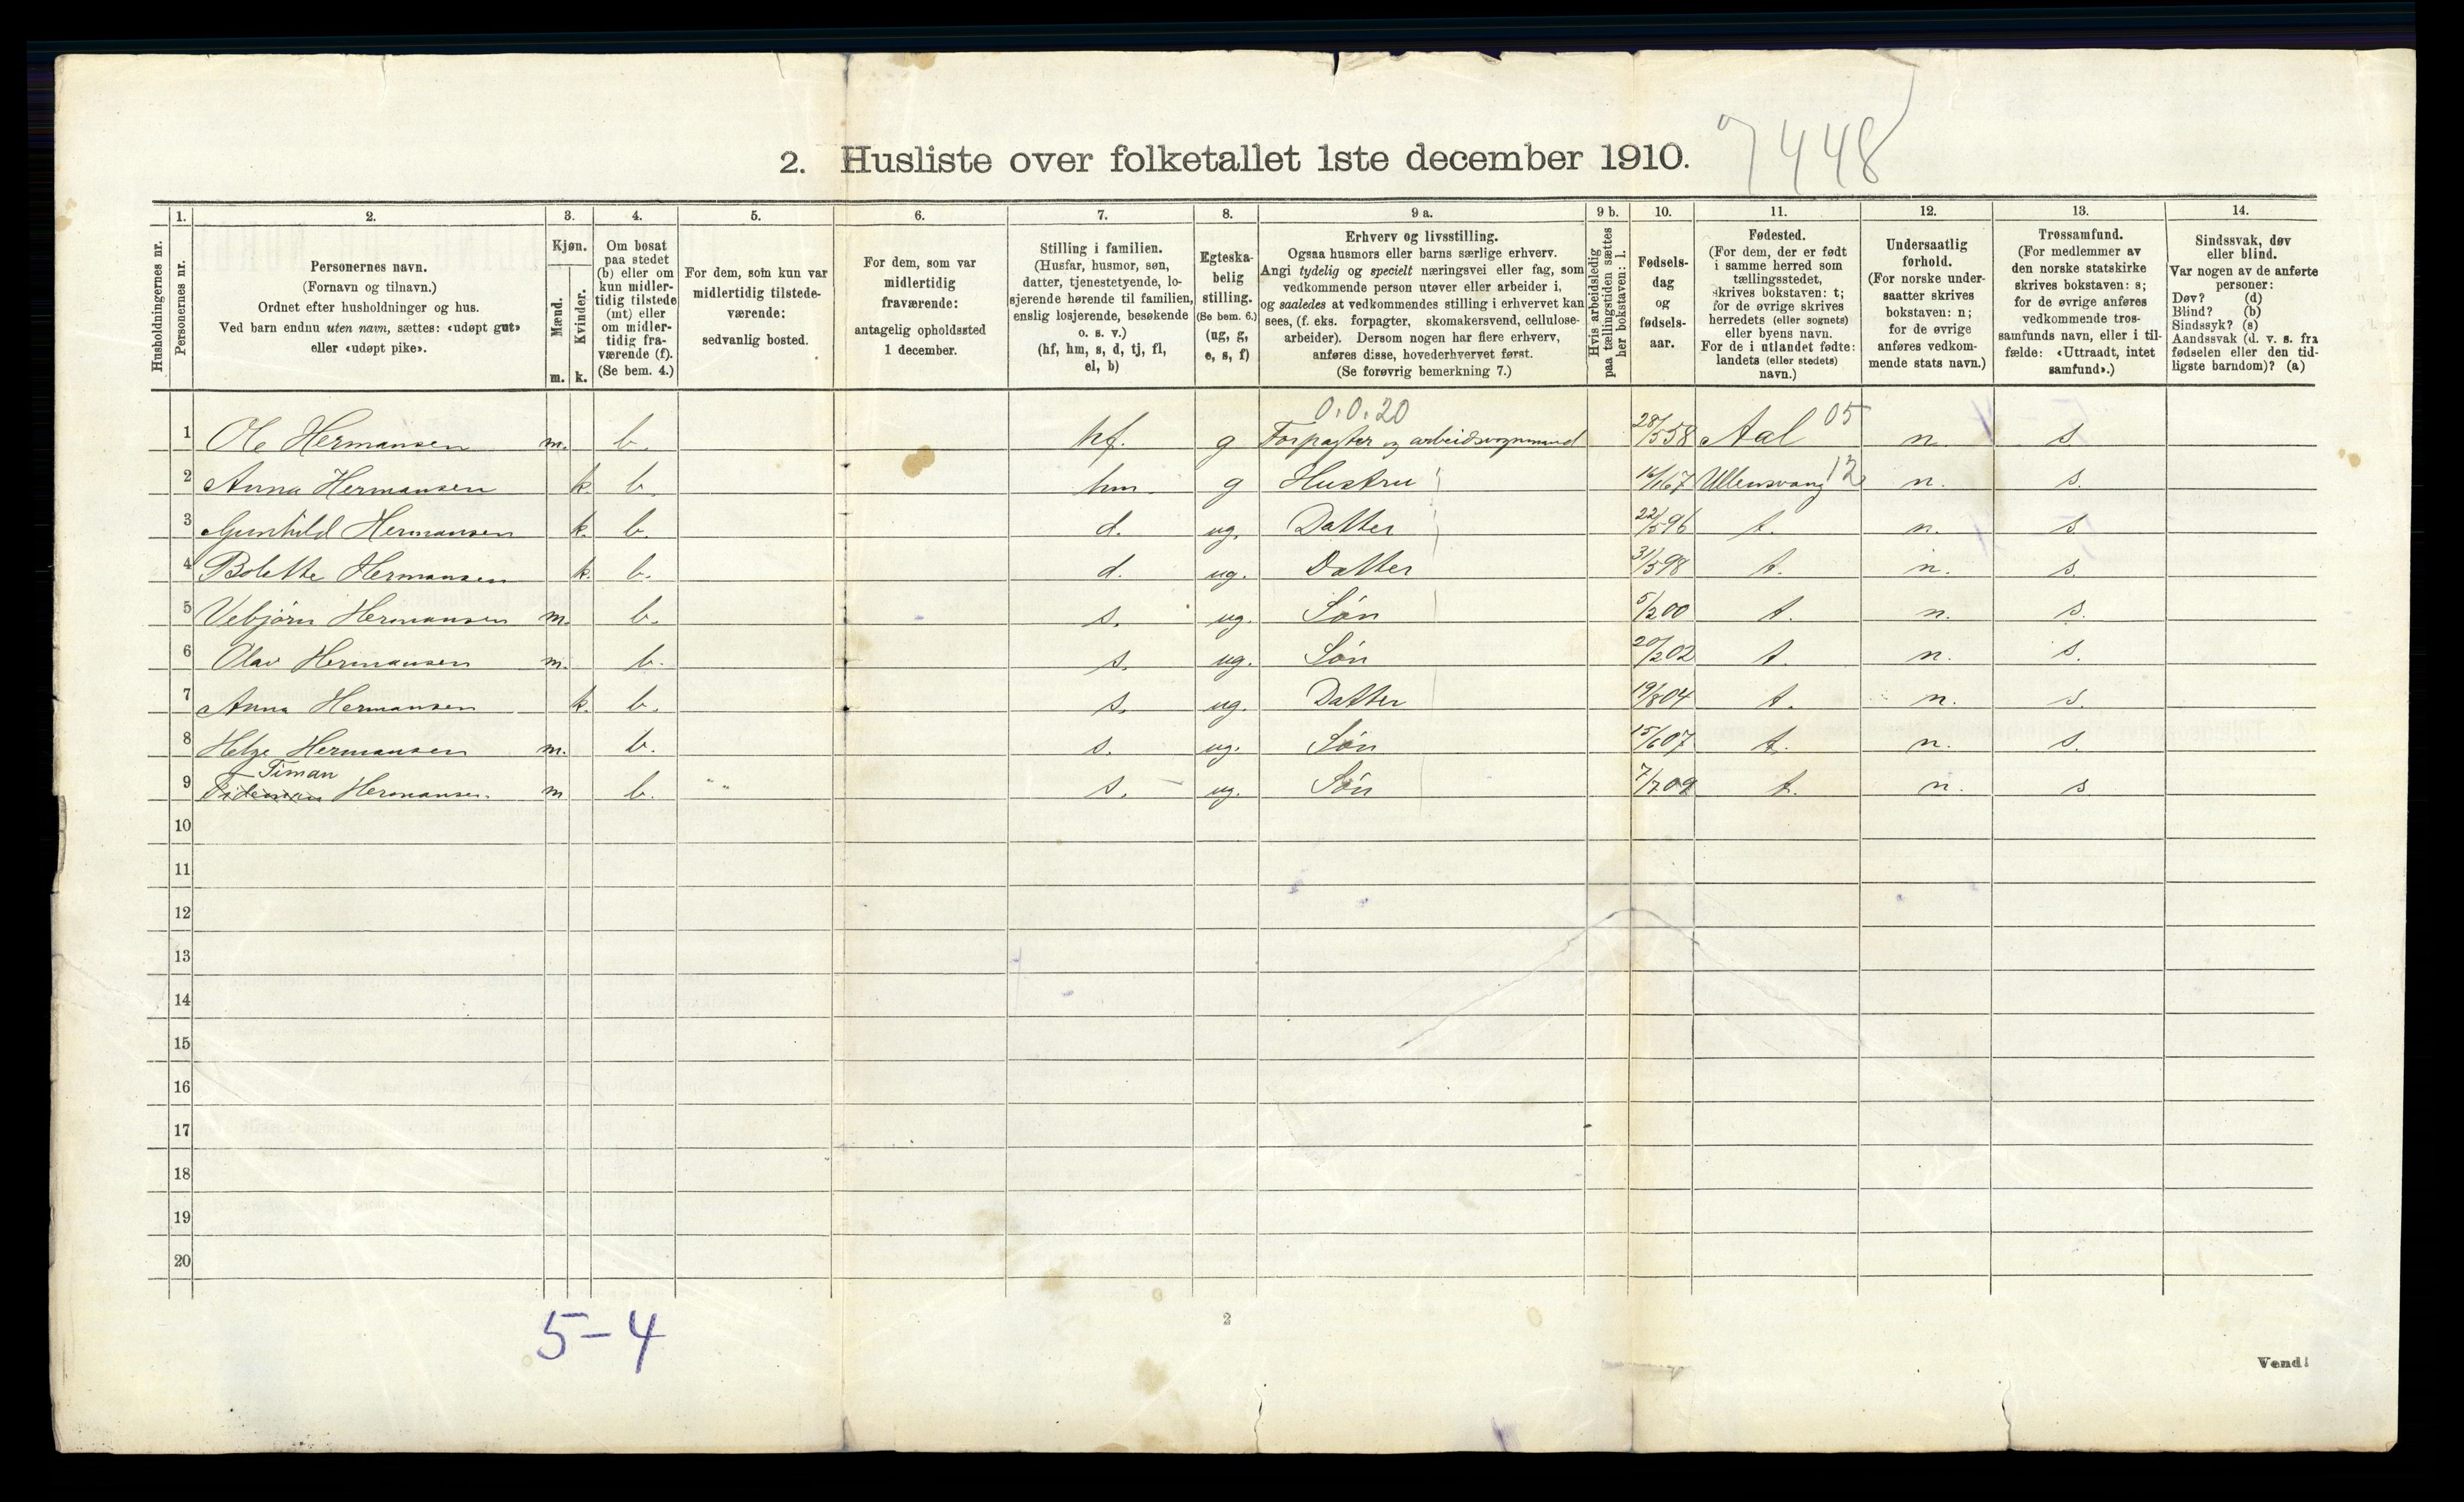 7448
2. Husliste over folketallet 1ste december 1910.
Husholdningernes nr.
1.
Personernes nr.
2.
Personernes navn.
(Fornavn og tilnavn.)
Ordnet efter husholdninger og hus.
Ved barn endnu uten navn, sættes: «udøpt gut»
eller «udøpt pike».
3.
Kjøn.
Mænd.
m.
Kvinder.
k.
4.
Om bosat
paa stedet
(b) eller om
kun midler-
tidig tilstede
(mt) eller
om midler-
tidig fra-
værende (f).
(Se bem. 4.)
5.
For dem, som kun var
midlertidig tilstede-
værende:
sedvanlig bosted.
6.
For dem, som var
midlertidig
fraværende:
antagelig opholdssted
1 december.
7.
Stilling i familien.
(Husfar, husmor, søn,
datter, tjenestetyende, lo-
sjerende hørende til familien,
enslig losjerende, besøkende
o. s. v.)
(hf, hm, s, d, tj, fl,
el, b)
8.
Egteska-
belig
stilling.
(Se bem. 6.)
(ug, g,
e, s, f)
9 a.
Erhverv og livsstilling.
Ogsaa husmors eller barns særlige erhverv.
Angi tydelig og specielt næringsvei eller fag, som
vedkommende person utøver eller arbeider i,
og saaledes at vedkommendes stilling i erhvervet kan
sees, (f. eks. forpagter, skomakersvend, cellulose-
arbeider). Dersom nogen har flere erhverv,
anføres disse, hovederhvervet først.
(Se forøvrig bemerkning 7.)
9 b.
Hvis arbeidsledig
paa tællingstiden sættes
her bokstaven: l.
10.
Fødsels-
dag
og
fødsels-
aar.
11.
Fødested.
(For dem, der er født
i samme herred som
tællingsstedet,
skrives bokstaven: t;
for de øvrige skrives
herredets (eller sognets)
eller byens navn.
For de i utlandet fødte:
landets (eller stedets)
navn.)
12.
Undersaatlig
forhold.
(For norske under-
saatter skrives
bokstaven: n;
for de øvrige
anføres vedkom-
mende stats navn.)
13.
Trossamfund.
(For medlemmer av
den norske statskirke
skrives bokstaven: s;
for de øvrige anføres
vedkommende tros-
samfunds navn, eller i til-
fælde: «Uttraadt, intet
samfund».)
14.
Sindssvak, døv
eller blind.
Var nogen av de anførte
personer:
Døv? (d)
Blind? (b)
Sindssyk? (s)
Aandssvak (d. v. s. fra
fødselen eller den tid-
ligste barndom)? (a)
0.0.20
1 Ole Hermansen m. b. hf. g Forpagter og arbeidsvognmand 28/5 58 Aal 05 n. s
2 Anna Hermansen k. b. hm. g Hustru 16/1 67 Ullensvang 12 n. s.
3 Gunhild Hermansen k. b. d. ug. Datter 22/5 96 t. n. s.
4 Bolette Hermansen k. b. d. ug. Datter 31/5 98 t. n. s.
5 Vebjørn Hermansen m. b. s. ug. Søn 5/2 00 t. n. s.
6 Olav Hermansen m. b. s. ug. Søn 20/2 02 t. n. s.
7 Anna Hermansen k. b. s. ug. Datter 19/8 04 t. n. s.
8 Helge Hermansen m. b. s. ug. Søn 15/6 07 t. n. s.
Timan
9 Tideman Hermansen m b. s. ug. Søn 7/7 09 t. n. s
10
11
12
13
14
15
16
17
18
19
20
5-4
2
Vend!